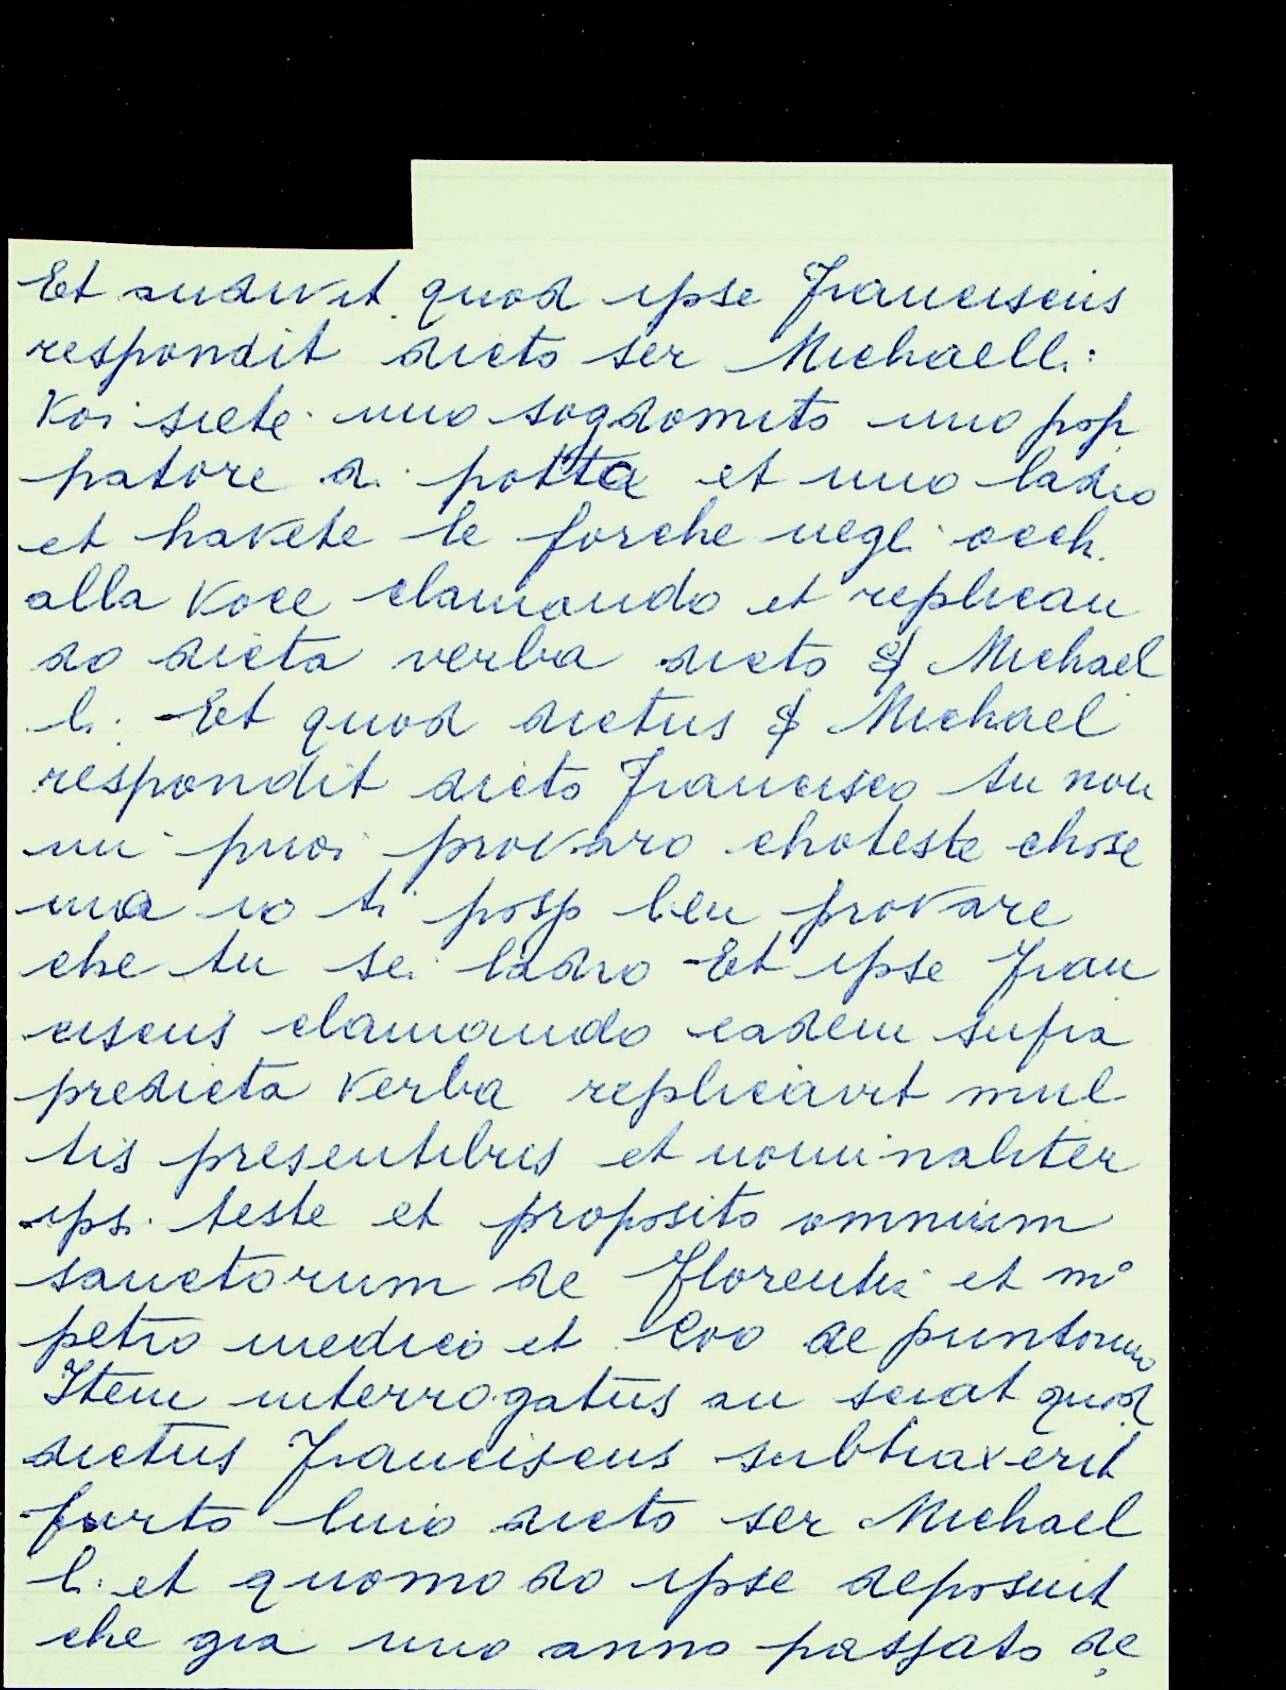 Et audivit quod ipse Franciscus
respondit dicto ser Michaeli:
Voi siete uno sogdomito uno pop
patore di potta et uno ladro
et havete le forche negli occhi
alla voce clamando et replican
do dicta verba dicto Michael
li. Et quod dictus Michael
respondit dicto Francisco tu non
mi puoi provaro choteste chose
ma io ti posso ben provare
che tu sei ladro Et ipse Fran
ciscus clamando eadem supra
predicta verba replicavit mul
tis presentibus et nominaliter
ipsi teste et proposito omnium
sanctorum de Florentia et mo
petro medico et de puntormo
Item interrogatus an sciat quod
dictus Franciscus subtraxerit
furto lino dicto ser Michael
li et quomodo ipse deposuit
che gia uno anno passato de